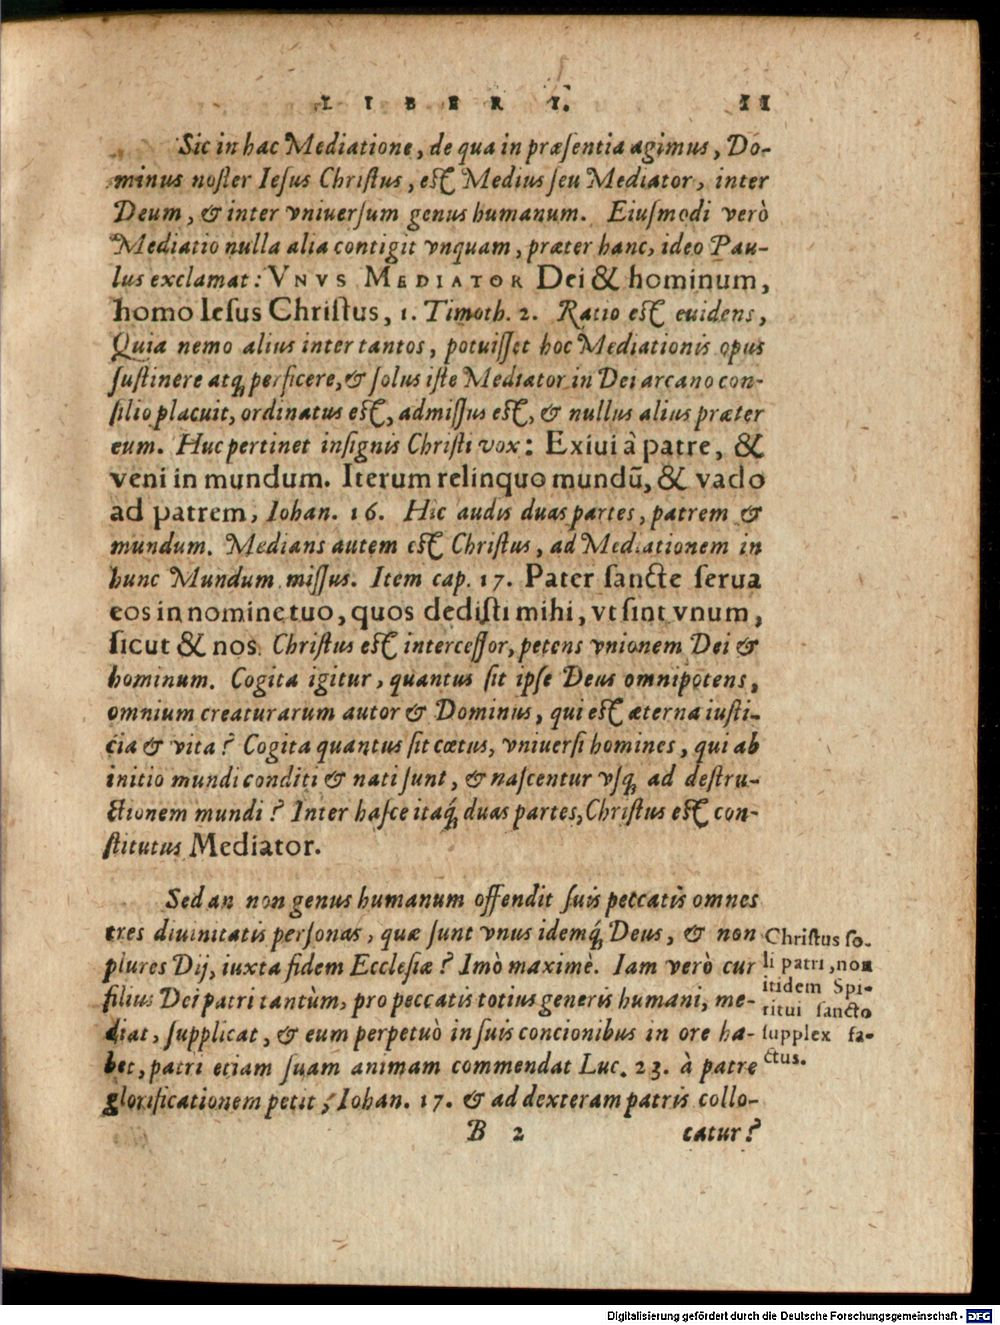 LIBER I. 11
Sic in hac Mediatione, de qua in præsentia agimus, Do-
minus noster Iesus Christus, est Medius seu Mediator, inter
Deum, & inter vniuersum genus humanum. Eiusmodi verò
Mediatio nulla alia contigit vnquam, præter hanc, ideo Pau-
lus exclamat: VNVS MEDIATOR Dei & hominum,
homo Iesus Christus, 1. Timoth. 2. Ratio est euidens,
Quia nemo alius inter tantos, potuisset hoc Mediationis opus
sustinere atq; perficere, & solus iste Mediator in Dei arcano con-
silio placuit, ordinatus est, admissus est, & nullus alius præter
eum. Huc pertinet insignis Christi vox: Exiui à patre, &
veni in mundum. Iterum relinquo mundũ, & vado
ad patrem, Iohan. 16. Hic audis duas partes, patrem &
mundum. Medians autem est Christus, ad Mediationem in
hunc Mundum missus. Item cap. 17. Pater sancte serua
eos in nomine tuo, quos dedisti mihi, vt sint vnum,
sicut & nos. Christus est intercessor, petens vnionem Dei &
hominum. Cogita igitur, quantus sit ipse Deus omnipotens,
omnium creaturarum autor & Dominus, qui est æterna iusti-
cia & vita? Cogita quantus sit cœtus, vniuersi homines, qui ab
initio mundi conditi & nati sunt, & nascentur vsq; ad destru-
ctionem mundi? Inter hasce itaq; duas partes, Christus est con-
stitutus Mediator.
Sed an non genus humanum offendit suis peccatis omnes
tres diuinitatis personas, quæ sunt vnus idemq; Deus, & non
plures Dij, iuxta fidem Ecclesiæ? Imò maximè. Iam verò cur
filius Dei patri tantùm, pro peccatis totius generis humani, me-
diat, supplicat, & eum perpetuò in suis concionibus in ore ha-
bet, patri etiam suam animam commendat Luc. 23. à patre
glorificationem petit, Iohan. 17. & ad dexteram patris collo-
Christus so-
li patri, non
itidem Spi-
ritui sancto
supplex fa-
ctus.
B 2 catur?
Digitalisierung gefördert durch die Deutsche Forschungsgemeinschaft - DFG